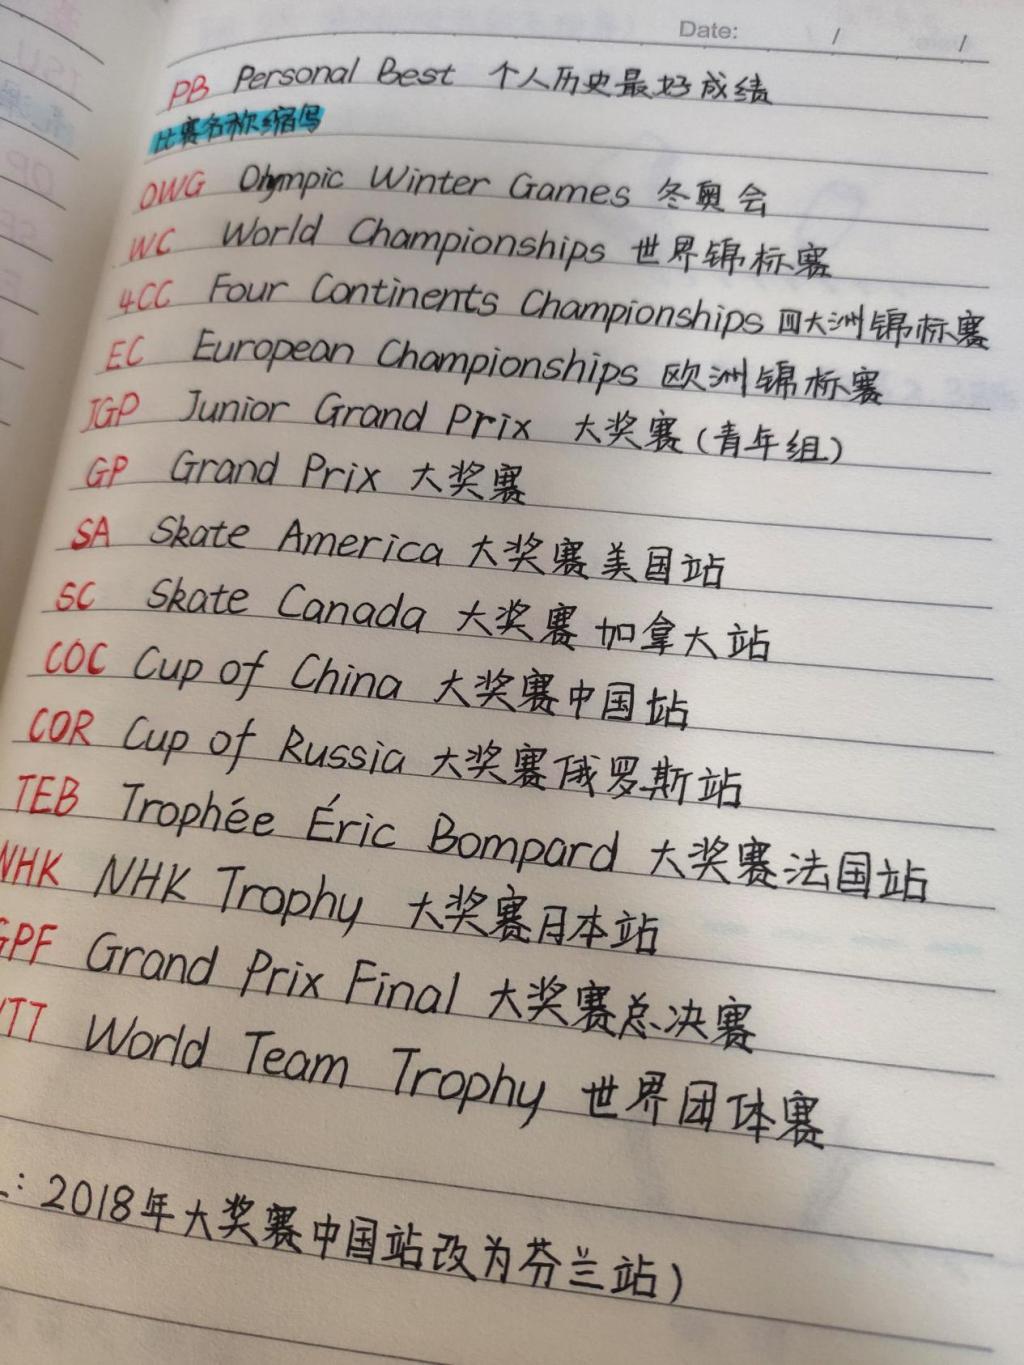 Date: / /
PB Personal Best 个人历史最好成绩
比赛名称缩写
OWG Olympic Winter Games 冬奥会
WC World Championships 世界锦标赛
4CC Four Continents Championships 四大洲锦标赛
EC European Championships 欧洲锦标赛
JGP Junior Grand Prix 大奖赛(青年组)
GP Grand Prix 大奖赛
SA Skate America 大奖赛美国站
SC Skate Canada 大奖赛加拿大站
COC Cup of China 大奖赛中国站
COR Cup of Russia 大奖赛俄罗斯站
TEB Trophée Éric Bompard 大奖赛法国站
NHK NHK Trophy 大奖赛日本站
GPF Grand Prix Final 大奖赛总决赛
TT World Team Trophy 世界团体赛
: 2018年大奖赛中国站改为芬兰站)